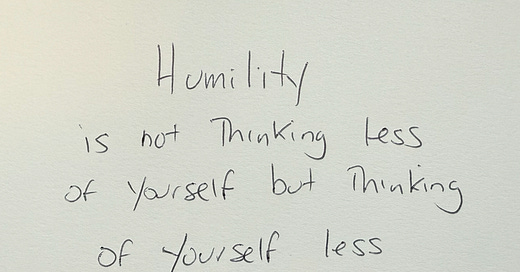 Humility
is not Thinking less
of yourself but Thinking
of yourself less